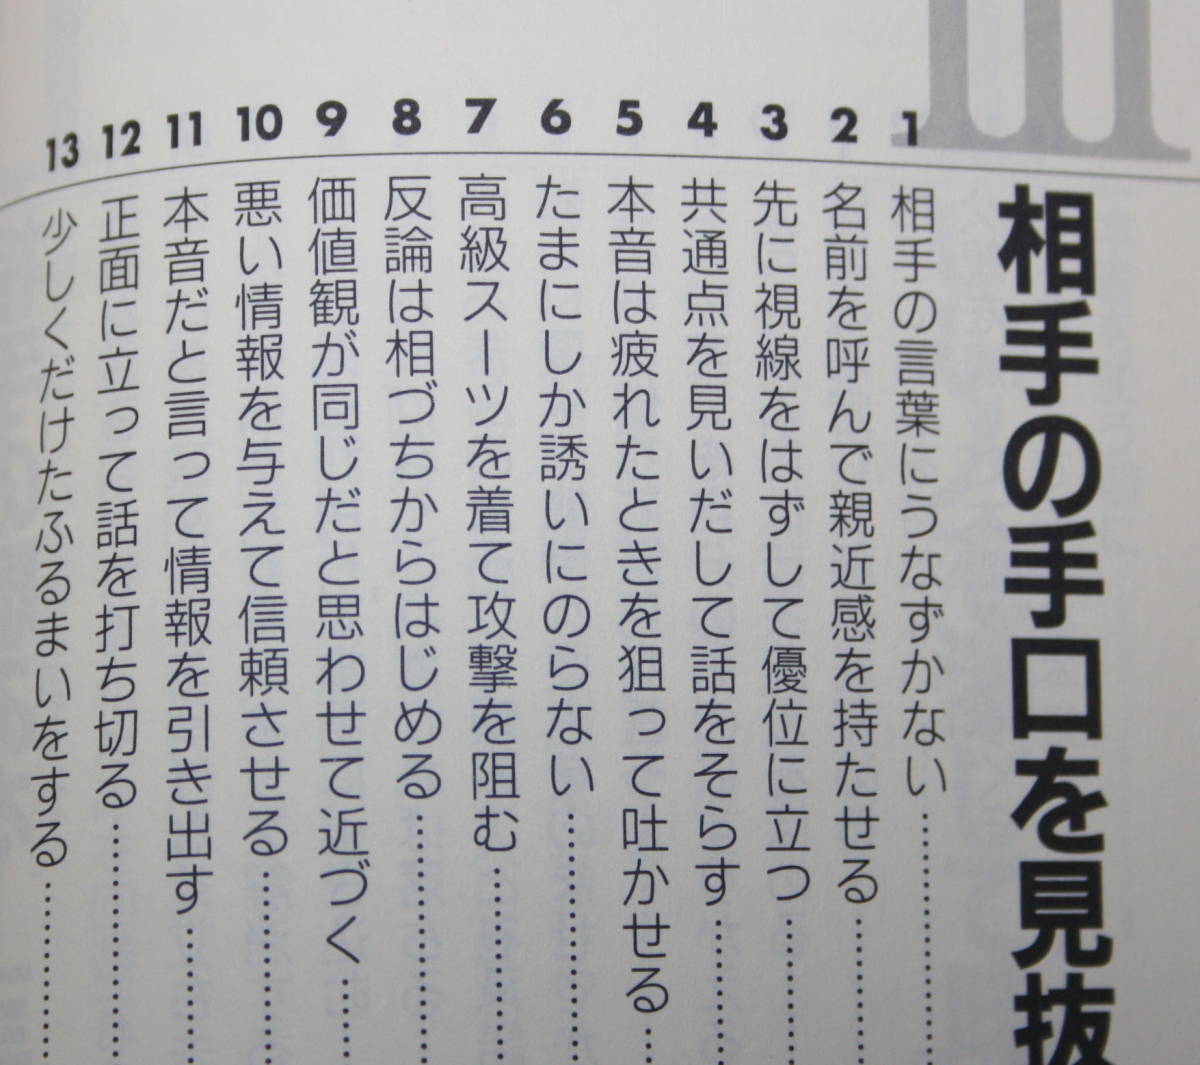 III
相手の手口を見抜
1 相手の言葉にうなずかない
2 名前を呼んで親近感を持たせる
3 先に視線をはずして優位に立つ
4 共通点を見いだして話をそらす
5 本音は疲れたときを狙って吐かせる
6 たまにしか誘いにのらない
7 高級スーツを着て攻撃を阻む
8 反論は相づちからはじめる
9 価値観が同じだと思わせて近づく
10 悪い情報を与えて信頼させる
11 本音だと言って情報を引き出す
12 正面に立って話を打ち切る
13 少しくだけたふるまいをする